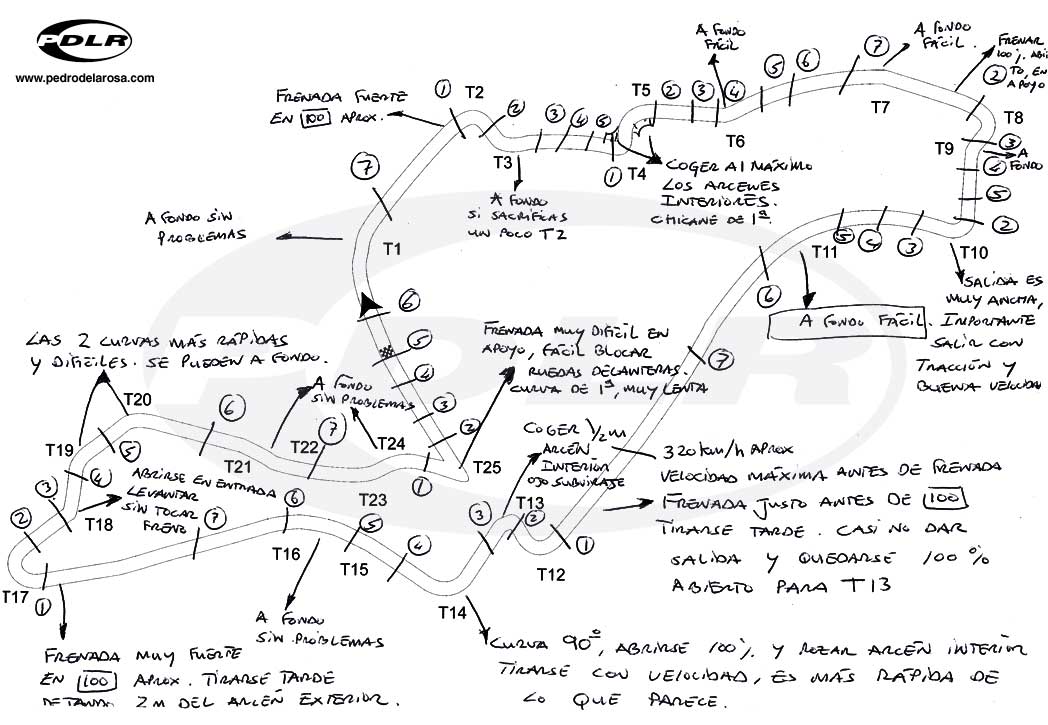 PDLR
www.pedrodelarosa.com
FRENADA FUERTE
EN 100 APROX.
1
T2
2
7
T3
3
4
5
A FONDO
SI SACRIFICAS
UN POCO T2
1
T4
T5
2
3
4
A FONDO
FÁCIL
T6
COGER Al MÁXIMO
LOS ARCENES
INTERIORES.
CHICANE DE 1ª
5
6
7
A FONDO
FÁCIL.
T7
FRENAR
100%
TO, EN
APOYO
2
T8
T9
3
A
FONDO
4
5
2
T10
SALIDA ES
MUY ANCHA,
IMPORTANTE
SALIR CON
TRACCIÓN Y
BUENA
3
4
5
T11
A FONDO FÁCIL.
6
7
A FONDO SIN
PROBLEMAS
T1
6
5
4
3
2
1
FRENADA MUY DIFÍCIL EN
APOYO, FÁCIL BLOCAR
RUEDAS DELANTERAS.
CURVA DE 1ª, MUY LENTA
T25
LAS 2 CURVAS MÁS RÁPIDAS
Y DIFÍCILES. SE PUEDEN A FONDO.
T20
T19
6
5
4
3
2
A FONDO
SIN PROBLEMAS
T21
T22
7
T24
T23
ABRIRSE EN ENTRADA
LEVANTAR
SIN TOCAR
FRENO
T18
T17
1
7
6
T16
5
T15
4
A FONDO
SIN PROBLEMAS
COGER 1/2 m
ARCÉN
INTERIOR
OJO SUBVIRAJE
3
T13
2
T12
1
T14
320 km/h APROX
VELOCIDAD MÁXIMA ANTES DE FRENADA
FRENADA JUSTO ANTES DE 100
TIRARSE TARDE. CASI NO DAR
SALIDA Y QUEDARSE 100%
ABIERTO PARA T13
CURVA 90º, ABRIRSE 100% Y ROZAR ARCÉN INTERIOR
TIRARSE CON VELOCIDAD, ES MÁS RÁPIDA DE
LO QUE PARECE.
FRENADA MUY FUERTE
EN 100 APROX. TIRARSE TARDE
2M DEL ARCÉN EXTERIOR.